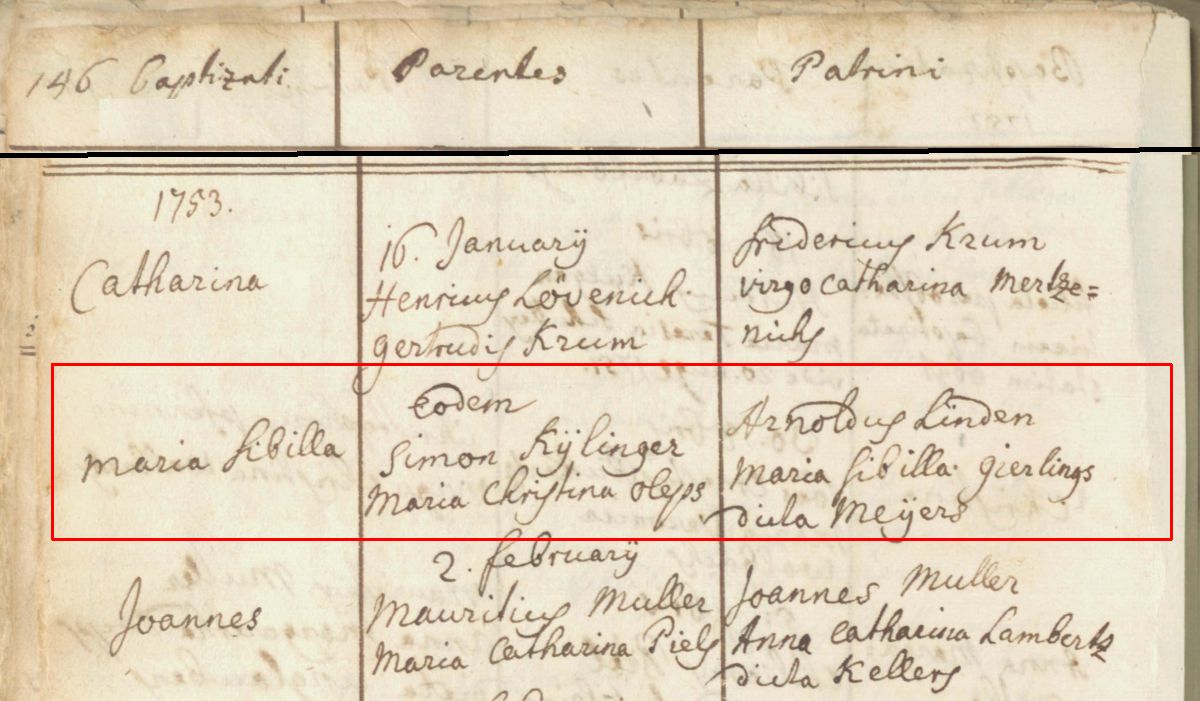 146 Baptizati. Parentes Patrini
1753.
Catharina
16. January
Henricus Lövenich
gertrudis Krum
fridericus Krum
virgo Catharina Mertze=
nichs
maria sibilla
Eodem
Simon Kÿlinger
Maria Christina Oleps
Arnoldus Linden
Maria sibilla gierlings
dicta Meÿers
Joannes
2. februarÿ
Mauritius Muller
Maria Catharina Piels
Joannes Muller
Anna Catharina Lambertz
dicta Kellers